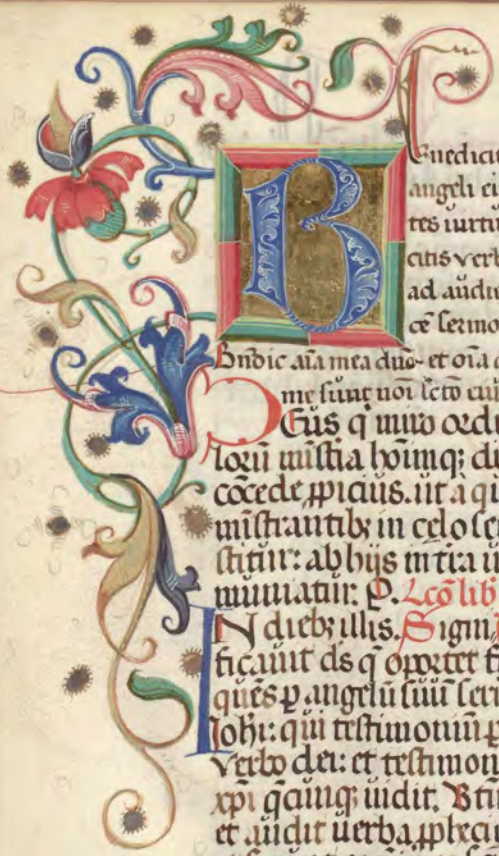 B
enedicite
angeli ei
tes uirtu
citis verb
ad audie
cē sermo
Bndic aīa mea dn̄o et oīa
me sunt noī scto eius
Deus q̄ miro ordi
lorū mīstīa hoīmq; di
cōcede ꝓpicius. ut a qui
mīstrantibꝫ in celo se
stitur: ab hijs in tīra u
muniatur. P. Lcō lib
In diebꝫ illis. Signi
ficauit ds q̄ oportet fi
quēs ꝑ angelū suū ser
Iohi: qui testimoniū p
verbo dei: et testimon
xpi q̄cūq; uidit. Bti
et audit uerba ꝓphecie